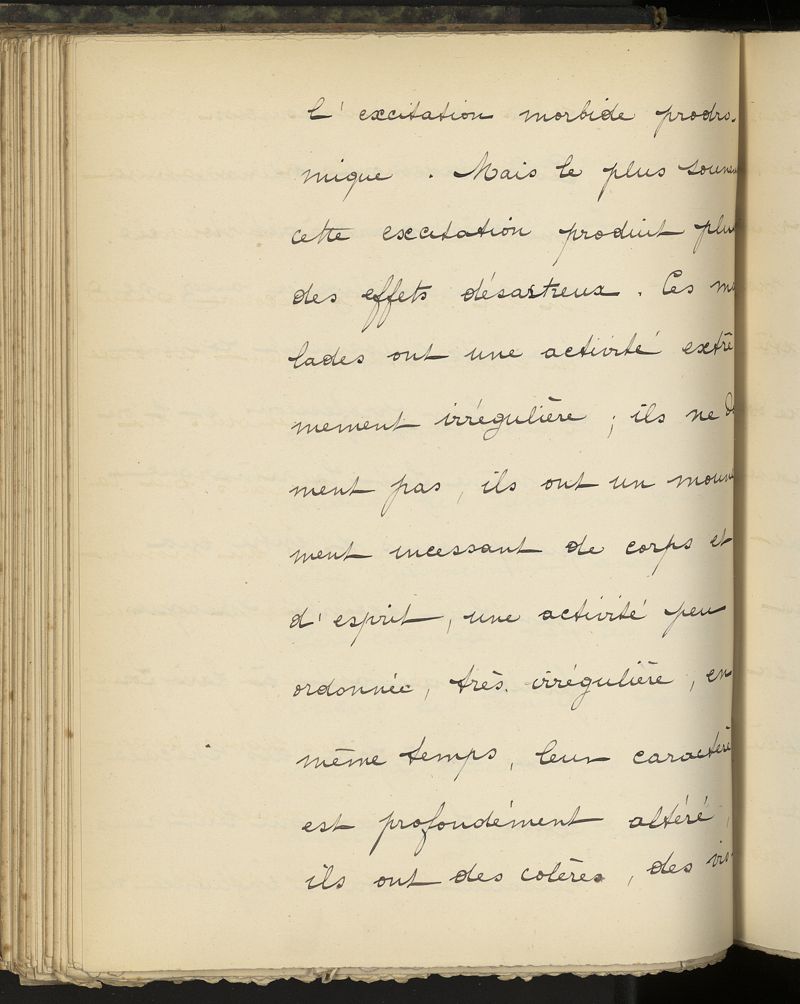 l'excitation morbide prodro-
mique. Mais le plus souven
cette excitation produit plu
des effets désastreux. Ces ma
lades ont une activité extrê
mement irrégulière ; ils ne do
ment pas, ils ont un mouve
ment incessant de corps et
d'esprit, une activité peu
ordonnée, très irrégulière, en
même temps, leur caractère
est profondément altéré,
ils ont des colères, des vio